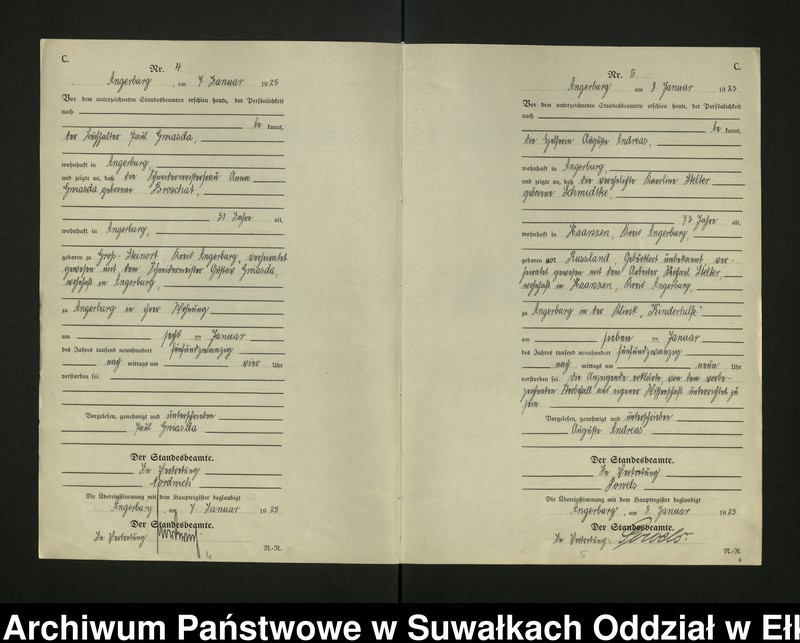 C.
Nr. 4
Angerburg, am 7 Januar 1925
Vor dem unterzeichneten Standesbeamten erschien heute, der Persönlichkeit
nach
be kannt,
der Buchhalter Paul Gwiasda,
wohnhaft in Angerburg
und zeigte an, daß die Schneidermeisterfrau Anna
Gwiasda geborene Broschat,
51 Jahre alt,
wohnhaft in Angerburg,
geboren zu Groß Steinort Kreis Angerburg, verheiratet
gewesen mit dem Schneidermeister Gustav Gwiasda,
wohnhaft in Angerburg,
zu Angerburg in ihrer Wohnung
am sechs ten Januar
des Jahres tausend neunhundert fünfundzwanzig
nach mittags um vier Uhr
verstorben sei.
Vorgelesen, genehmigt und unterschrieben
Paul Gwiasda
Der Standesbeamte.
In Vertretung
Die Übereinstimmung mit dem Hauptregister beglaubigt
Angerburg, am 7. Januar 1925
Der Standesbeamte.
In Vertretung
4
N.-R.
C.
Nr. 5
Angerburg am 8 Januar 1925
Vor dem unterzeichneten Standesbeamten erschien heute, der Persönlichkeit
nach
be kannt,
die Helferin Auguste Andreas,
wohnhaft in Angerburg,
und zeigte an, daß die verehelichte Karoline Stelter
geborene Schmidtke,
73 Jahre alt,
wohnhaft in Haarszen, Kreis Angerburg,
geboren Russland, Geburtsort unbekannt, ver-
heiratet gewesen mit dem Arbeiter Michael Stelter,
wohnhaft in Haarszen, Kreis Angerburg,
zu Angerburg in der Klinik "Kinderhilfe"
am sieben ten Januar
des Jahres tausend neunhundert fünfundzwanzig
nach mittags um neun Uhr
verstorben sei. Die Anzeigende erklärte, von dem vorbe-
zeichneten Sterbefall aus eigener Wissenschaft unterrichtet zu
sein
Vorgelesen, genehmigt und unterschrieben
Auguste Andreas
Der Standesbeamte.
In Vertretung
Die Übereinstimmung mit dem Hauptregister beglaubigt
Angerburg, am 8. Januar 1925
Der Standesbeamte.
In Vertretung.
5
N.-R.
Archiwum Państwowe w Suwałkach Oddział w Ełk